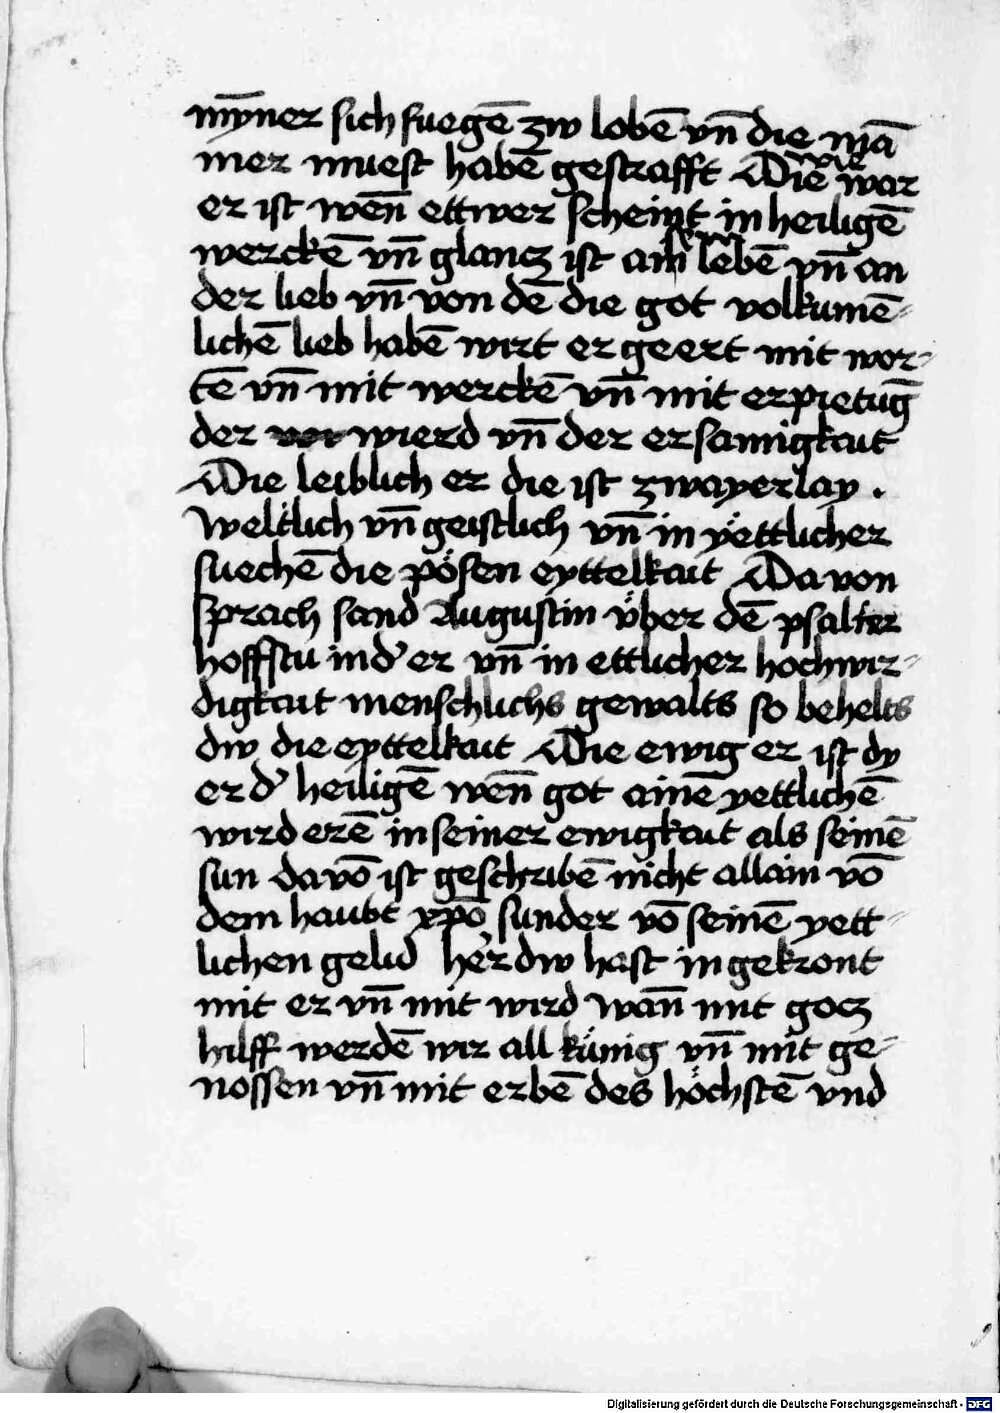 mỹner sich fuegē zw lobē vn̄ die mā
mer muest habē gestrafft Die war
er ist wen̄ ettwer scheint in heiligē
werckē vn̄ glancz ist am lebē vn̄ an
der lieb vn̄ von dē die got volkumē-
lichē lieb habē wirt er geert mit wor-
tē vn̄ mit werckē vn̄ mit erpietūg
der wierd vn̄ der ersamigkait
Die leiblich er die ist zwayerlay .
weltlich vn̄ geistlich vn̄ in yettlicher
suechē die pösen eyttelkait Da von
sprach sand Augustin vber dē psalter
hoffstu in d' er vn̄ in ettlicher hochwir-
digkait menschlichs gewalts so behelts
dw die eyttelkait Die ewig er ist dy
er d' heiligē wen̄ got ainē yettlichē
wird erē in seiner ewigkait als seinē
sun da vō ist geschribē nicht allain vō
dem haubt xpō sunder vō seinē yett-
lichen gelid her dw hast in gekront
mit er vn̄ mit wird wan̄ mit gocz
hilff werdē wir all künig vn̄ mit ge-
nossen vn̄ mit erbē des höchstē vnd
Digitalisierung gefördert durch die Deutsche Forschungsgemeinschaft - DFG